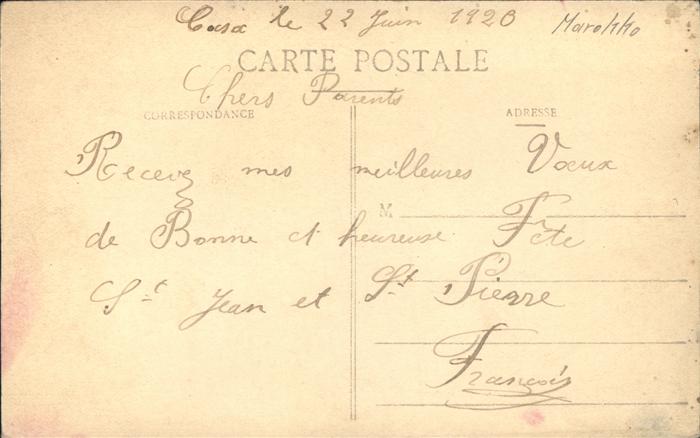 Casa le 22 Juin 1920 Marokko
CARTE POSTALE
Chers Parents
CORRESPONDANCE ADRESSE
Recevez mes meilleures Vœux
M
de Bonne et heureuse Fête
St Jean et St Pierre
François